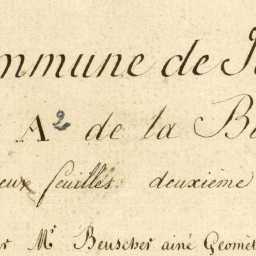 mmune de
A² de la B
eux feuilles deuxième
r Mr Beuscher ainé Géomèt